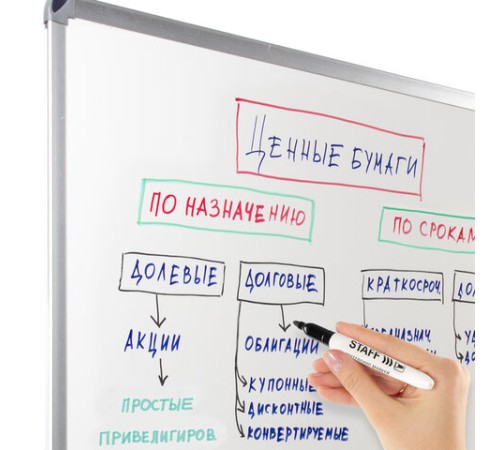 ЦЕННЫЕ БУМАГИ
ПО НАЗНАЧЕНИЮ
ПО СРОКАМ
ДОЛЕВЫЕ
ДОЛГОВЫЕ
КРАТКОСРОЧ.
АКЦИИ
ОБЛИГАЦИИ
ПРОСТЫЕ
ПРИВЕЛИГИРОВ.
КУПОННЫЕ
ДИСКОНТНЫЕ
КОНВЕРТИРУЕМЫЕ
STAFF